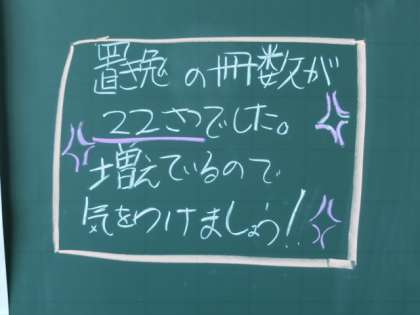 置き勉の冊数が
22さつでした。
増えているので
気をつけましょう!!